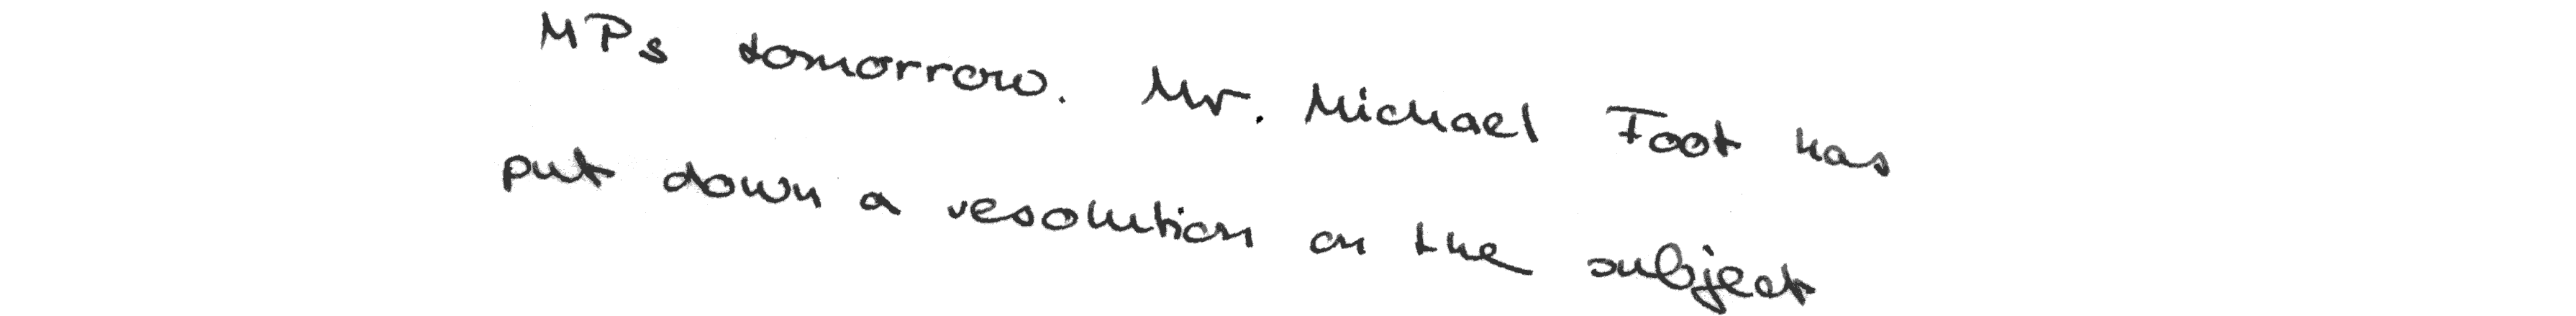 MPs tomorrow. Mr. Michael Foot has
put down a resolution on the subject